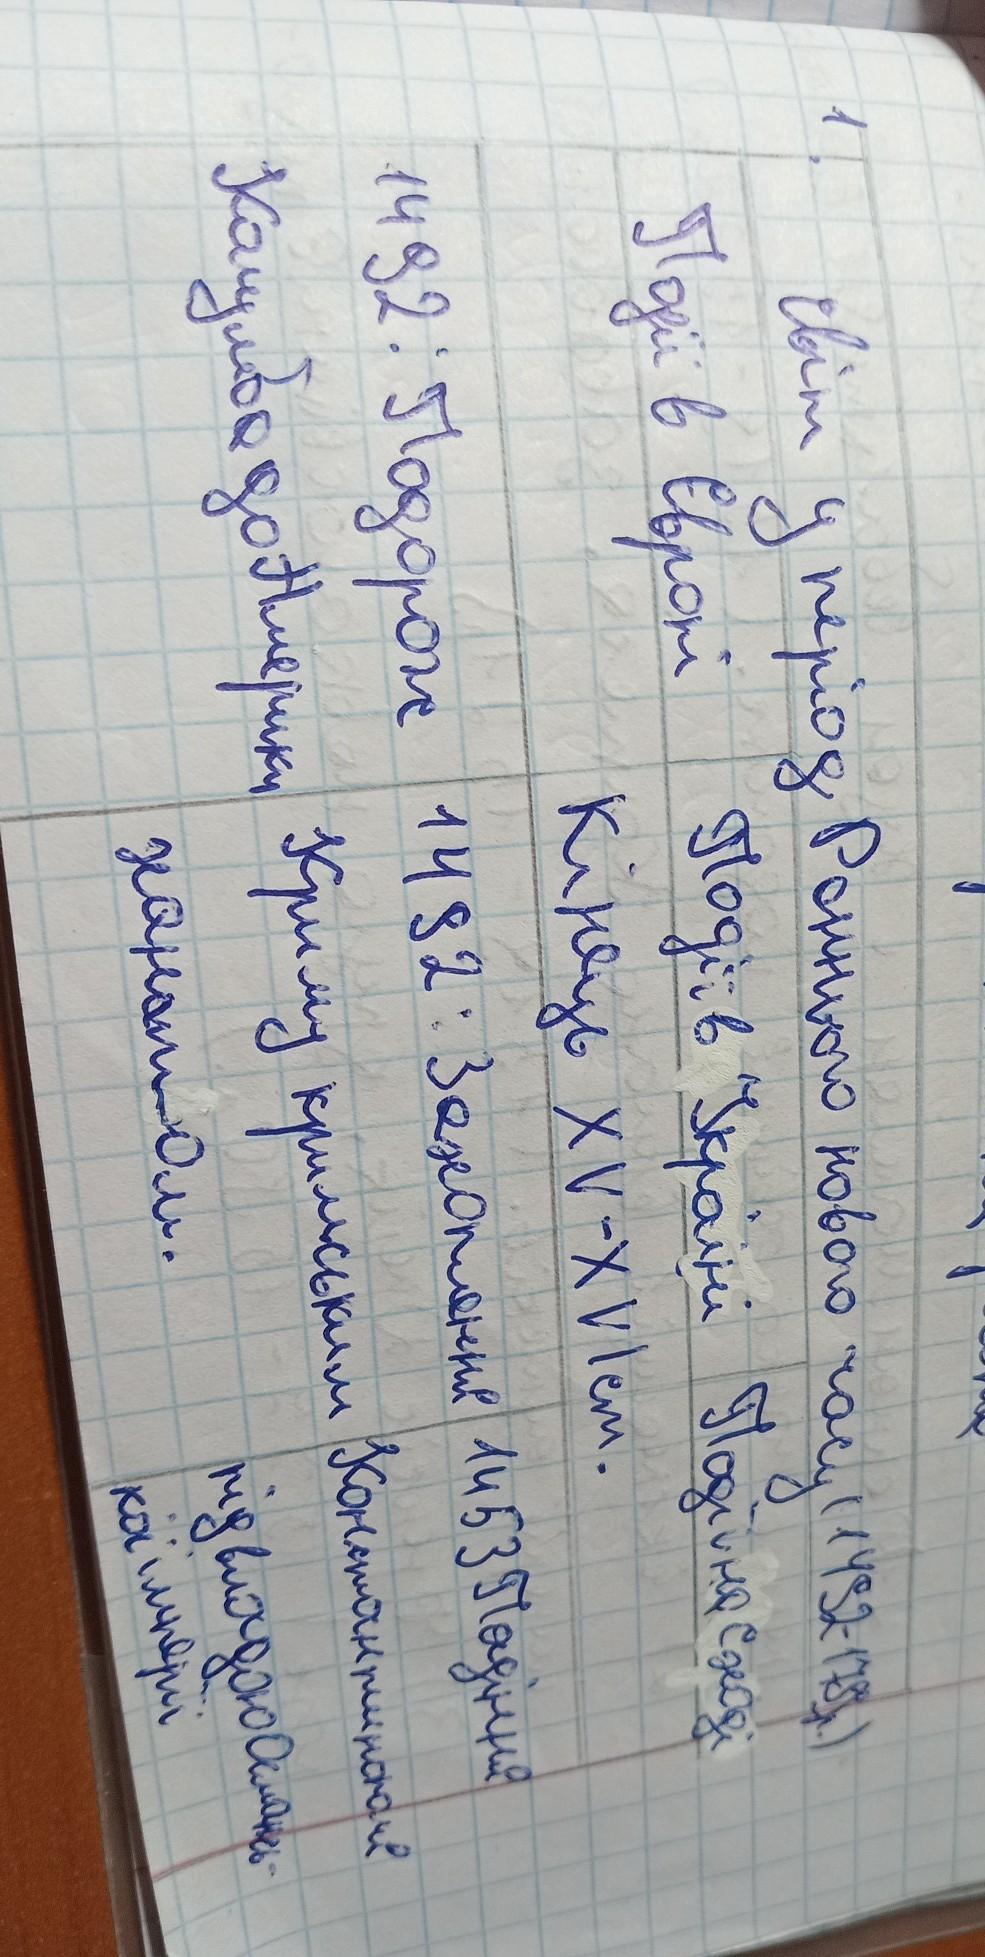 1. Світ у період Раннього нового часу (1492-1789р.)
Події в Європі
Події в Україні
Події на Сході
Кінець XV-XVI ст.
1492: Подорож
Колумба до Америки
1492: Захоплення
Криму кримським
ханатом.
1453 Падіння
Константинополя
під владою Османсь-
кої імперії